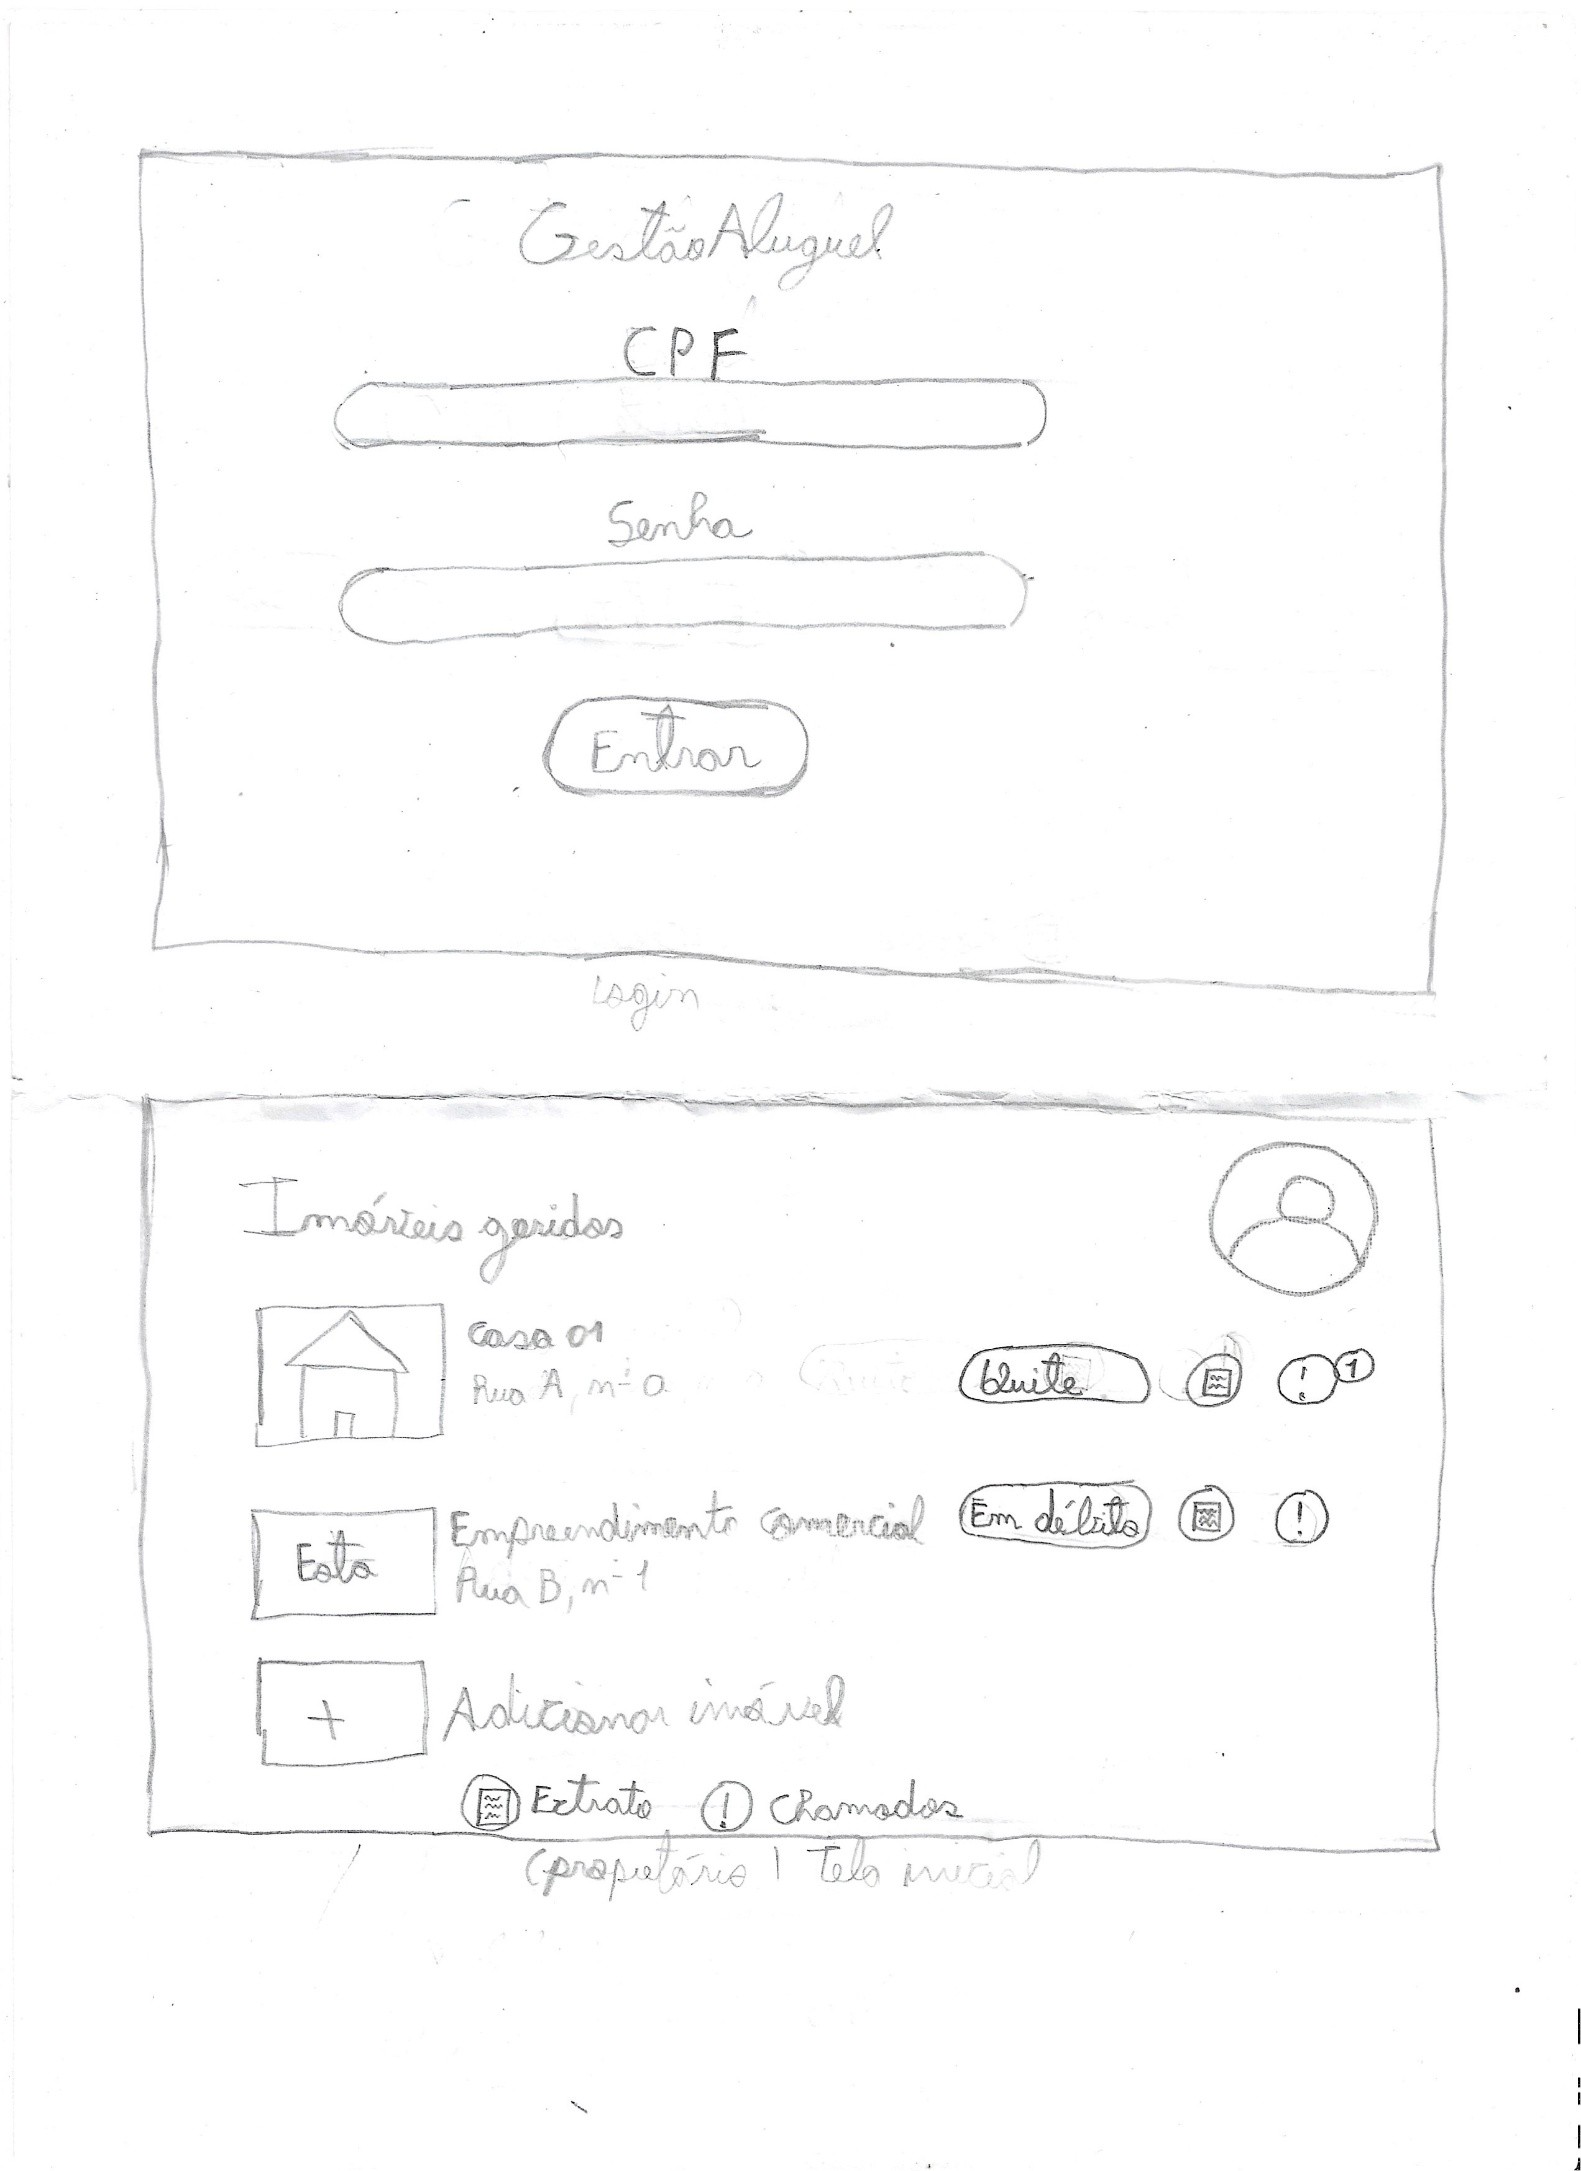 GestãoAluguel
CPF
Senha
Entrar
Login
Imóveis geridos
Casa 01
Rua A, nº 0
Quite
!
1
Empreendimento comercial
Em débito
!
Foto
Rua B, nº 1
+
Adicionar imóvel
Extrato
!
Chamados
(propietário | Tela inicial